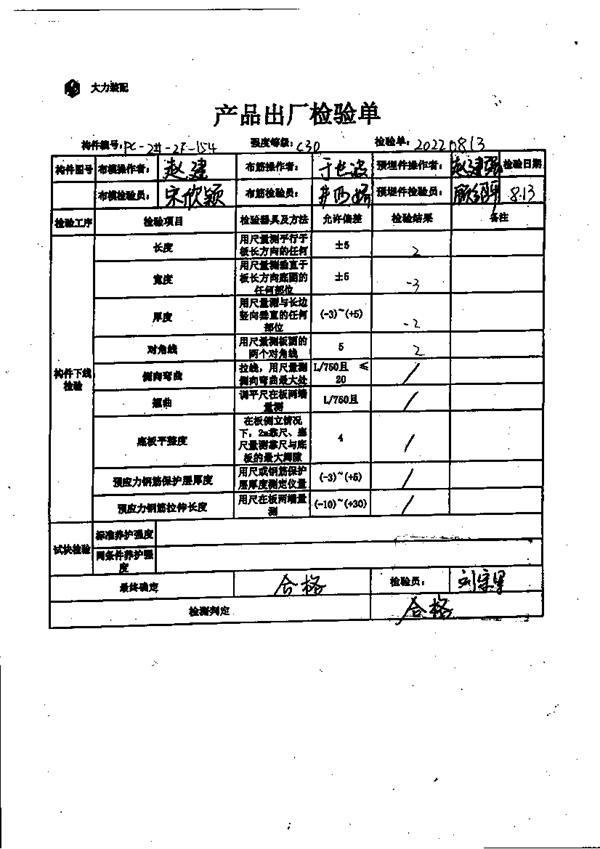 大力装配
产品出厂检验单
构件编号：PC-2#-2F-154 强度等级：C30 检验单：20220813
构件图号 布模操作者： 赵建 布筋操作者： 预埋件操作者： 赵建强 检验日期
布模检验员： 宋欣颖 布筋检验员： 预埋件检验员： 8.13
检验工序 检验项目 检验器具及方法 允许偏差 检验结果 备注
构件下线检验
长度 用尺量测平行于板长方向的任何 ±5 2
宽度 用尺量测垂直于板长方向底面的任何部位 ±5 -3
厚度 用尺量测与长边竖向垂直的任何部位 (-3)~(+5) -2
对角线 用尺量测板面的两个对角线 5 2
侧向弯曲 拉线，用尺量测侧向弯曲最大处 L/750且 ≤20 /
翘曲 调平尺在板两端量测 L/750且 /
底板平整度 在板侧立情况下，2m靠尺、塞尺量测靠尺与底板的最大间隙 4 /
预应力钢筋保护层厚度 用尺或钢筋保护层厚度测定仪量 (-3)~(+5) /
预应力钢筋拉伸长度 用尺在板两端量测 (-10)~(+30) /
试块检验 标准养护强度
同条件养护强度
最终确定 合格 检验员：
检测判定 合格